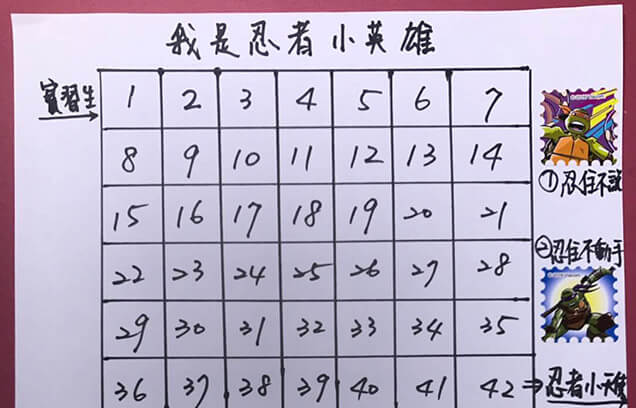 我是忍者小英雄
實習生
1 2 3 4 5 6 7
8 9 10 11 12 13 14
①忍住不說
15 16 17 18 19 20 21
②忍住不動手
22 23 24 25 26 27 28
29 30 31 32 33 34 35
36 37 38 39 40 41 42 ⇒忍者小英雄